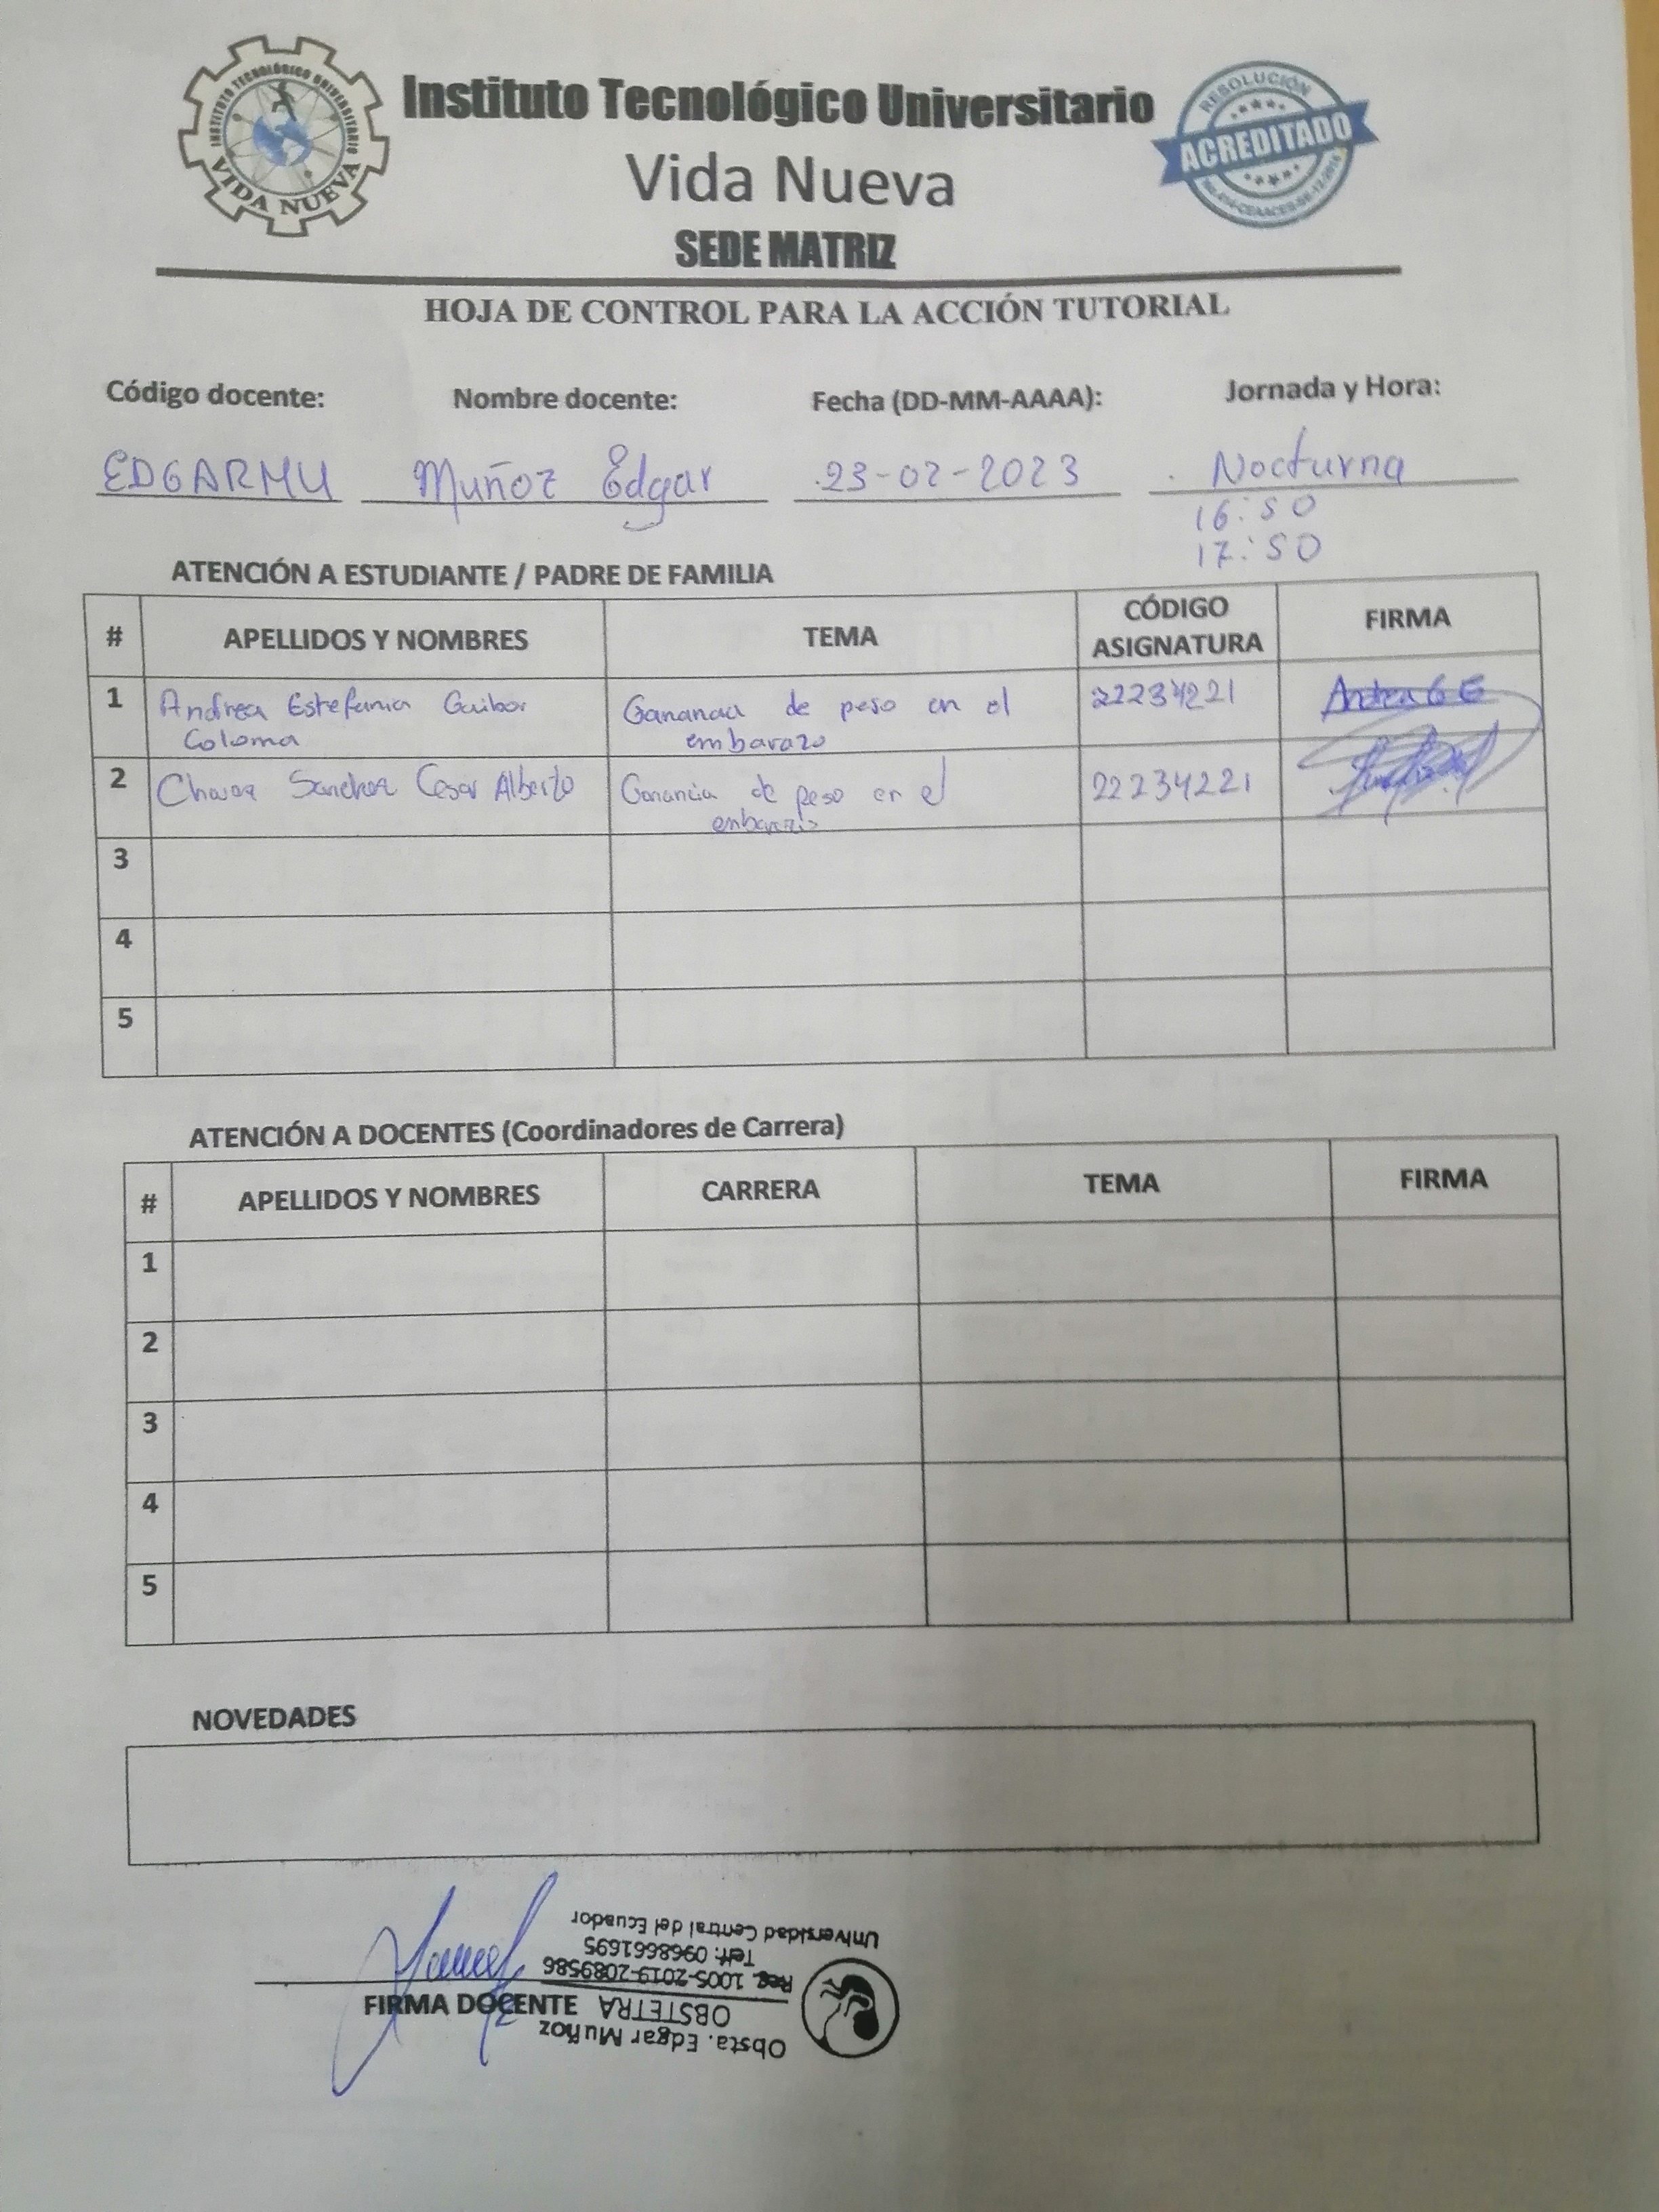 INSTITUTO TECNOLÓGICO UNIVERSITARIO
VIDA NUEVA
Instituto Tecnológico Universitario
Vida Nueva
SEDE MATRIZ
RESOLUCIÓN
ACREDITADO
HOJA DE CONTROL PARA LA ACCIÓN TUTORIAL
Código docente: Nombre docente: Fecha (DD-MM-AAAA): Jornada y Hora:
EDGARMU Muñoz Edgar 23-02-2023 Nocturna
16:50
17:50
ATENCIÓN A ESTUDIANTE / PADRE DE FAMILIA
# APELLIDOS Y NOMBRES TEMA CÓDIGO ASIGNATURA FIRMA
1 Andrea Estefania Guibor Coloma Ganancia de peso en el embarazo 22234221 Andrea G E
2 Chavez Sanchez Cesar Alberto Ganancia de peso en el embarazo 22234221
3
4
5
ATENCIÓN A DOCENTES (Coordinadores de Carrera)
# APELLIDOS Y NOMBRES CARRERA TEMA FIRMA
1
2
3
4
5
NOVEDADES
FIRMA DOCENTE
Obsta. Edgar Muñoz
OBSTETRA
Reg. 1005-2019-2089586
Telf: 0968661695
Universidad Central del Ecuador